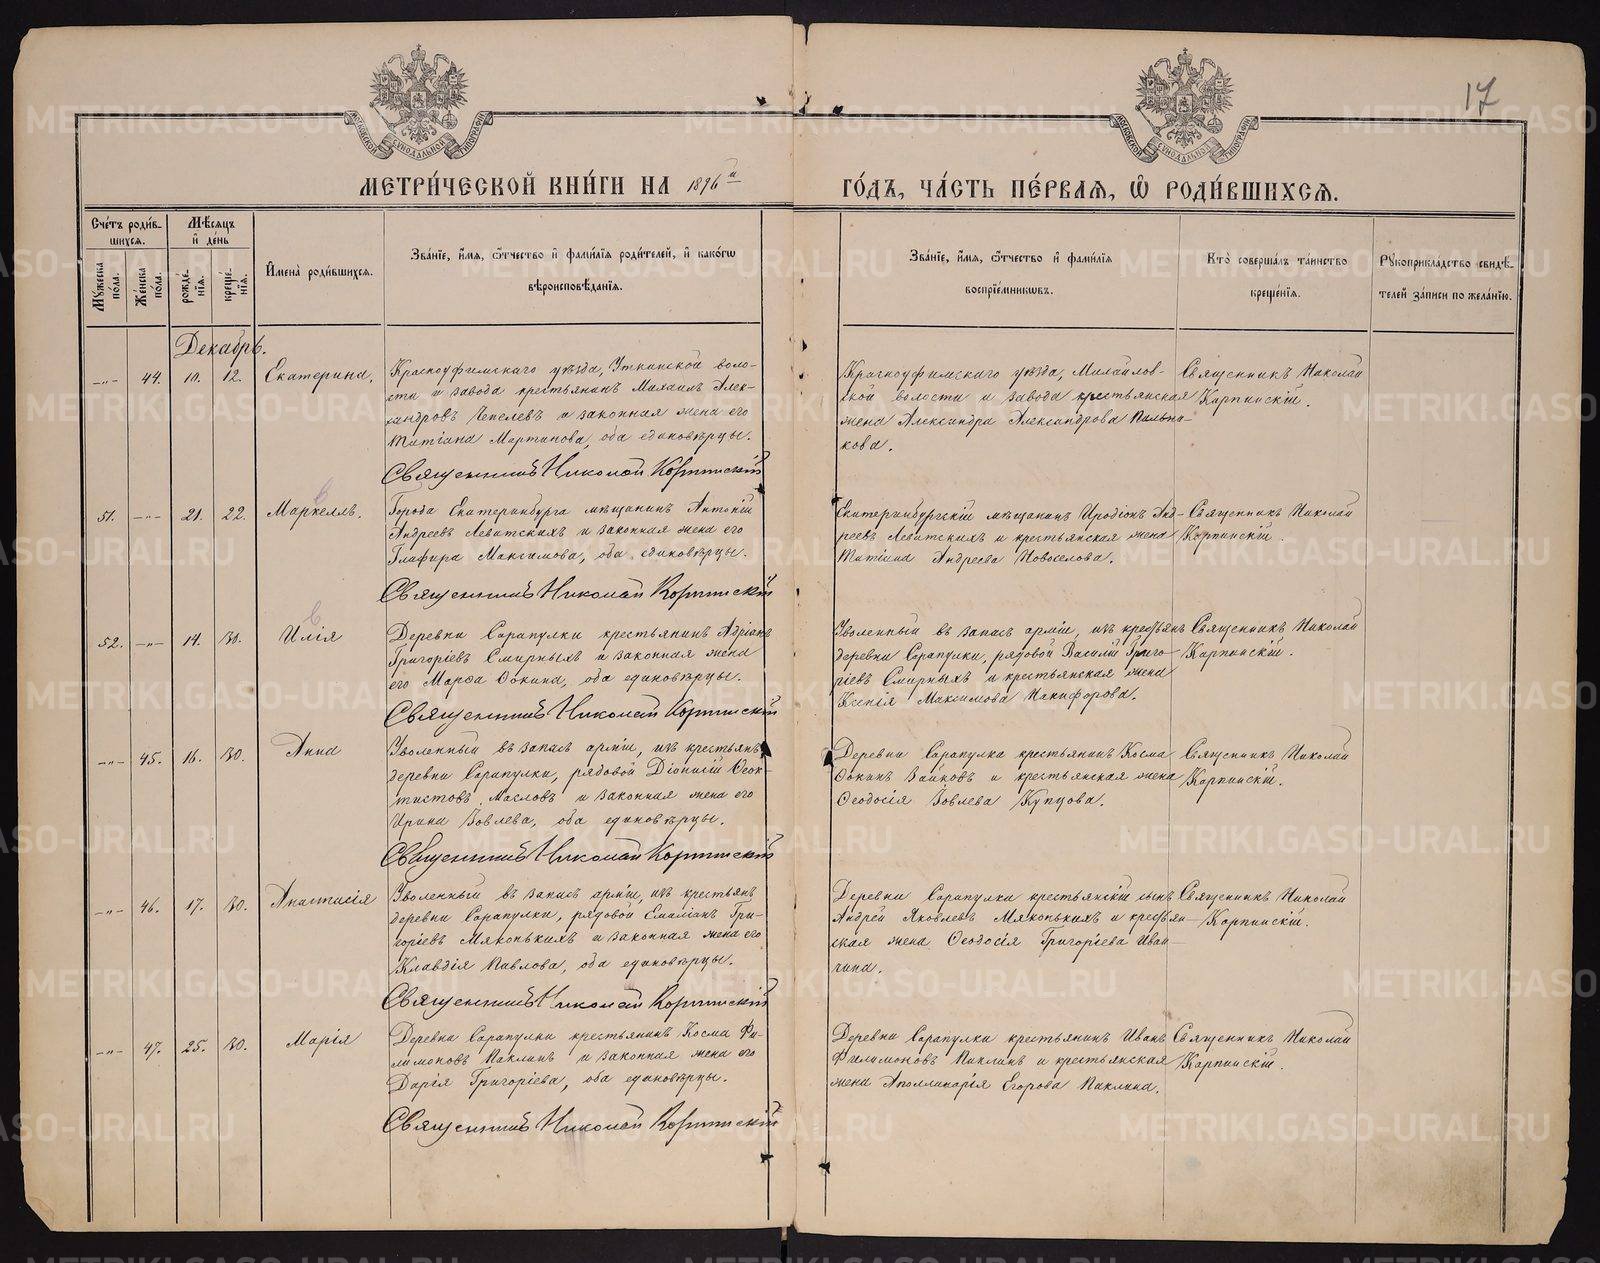 17
МОСКОВСКОЙ СѴНОДАЛЬНОЙ ТИПОГРАФІИ
МОСКОВСКОЙ СѴНОДАЛЬНОЙ ТИПОГРАФІИ
МЕТРИ́ЧЕСКОЙ КНИ́ГИ НА 1896й
ГО́ДЪ, ЧА́СТЬ ПЕ́РВАѦ, Ѡ҆ РОДИ́ВШИХСѦ.
Сче́тъ роди́в-
шихсѧ.
Мѣ́сѧцъ
и҆ де́нь
Му́жеска
пола.
Же́нска
пола.
рожде́-
нїѧ.
креще́-
нїѧ.
И҆мена̀ роди́вшихсѧ.
Зва́нїе, и҆́мѧ, ѻ҆́тчество и҆ фами́лїѧ роди́телей, и҆ како́гѡ
вѣроисповѣ́данїѧ.
Зва́нїе, и҆́мѧ, ѻ҆́тчество и҆ фами́лїѧ
воспрїе́мникѡвъ.
Кто̀ соверша́лъ та́инство
креще́нїѧ.
Рꙋкоприкла́дство свидѣ́-
телей за́писи по жела́нїю.
Декабрь.
—"— 44. 10. 12. Екатерина.
Красноуфимскаго уѣзда, Уткинской воло-
сти и завода крестьянинъ Михаилъ Алек-
сандровъ Чепелевъ и законная жена его
Татіана Мартинова, оба единовѣрцы.
Священникъ Николай Корпинскій
Красноуфимскаго уѣзда, Михайлов-
ской волости и завода крестьянская
жена Александра Александрова Пальни-
кова.
Священникъ Николай
Карпинскій.
51. —"— 21. 22. Маркеллъ.
Города Екатеринбурга мѣщанинъ Антоній
Андреевъ Левитскихъ и законная жена его
Глафира Максимова, оба единовѣрцы.
Священникъ Николай Корпинскій
Екатеринбургскій мѣщанинъ Иродіонъ Анд-
реевъ Левитскихъ и крестьянская жена
Татіана Андреева Новоселова.
Священникъ Николай
Карпинскій.
52. —"— 14. 30. Илія
Деревни Сарапулки крестьянинъ Адріанъ
Григоріевъ Смирныхъ и законная жена
его Марѳа Ѳокина, оба единовѣрцы.
Священникъ Николай Корпинскій
Уволенный въ запасъ арміи, изъ крестьянъ
деревни Сарапулки, рядовой Василій Григо-
ріевъ Смирныхъ и крестьянская жена
Ксенія Максимова Никифорова.
Священникъ Николай
Карпинскій.
—"— 45. 16. 30. Анна
Уволенный въ запасъ арміи, изъ крестьянъ
деревни Сарапулки, рядовой Діонисій Ѳеок-
тистовъ Масловъ и законная жена его
Ирина Іовлева, оба единовѣрцы.
Священникъ Николай Корпинскій
Деревни Сарапулка крестьянинъ Косма
Ѳокинъ Зайковъ и крестьянская жена
Ѳеодосія Іовлева Купцова.
Священникъ Николай
Карпинскій.
—"— 46. 17. 30. Анастасія
Уволенный въ запасъ арміи, изъ крестьянъ
деревни Сарапулки, рядовой Емиліанъ Гри-
горіевъ Мяконькихъ и законная жена его
Клавдія Павлова, оба единовѣрцы.
Священникъ Николай Корпинскій
Деревни Сарапулки крестьянскій сынъ
Андрей Яковлевъ Мяконькихъ и крестьян-
ская жена Ѳеодосія Григоріева Иван-
чина.
Священникъ Николай
Карпинскій.
—"— 47. 25. 30. Марія
Деревни Сарапулки крестьянинъ Косма Фи-
лимоновъ Паклинъ и законная жена его
Дарія Григоріева, оба единовѣрцы.
Священникъ Николай Корпинскій
Деревни Сарапулки крестьянинъ Иванъ
Филимоновъ Паклинъ и крестьянская
жена Аполлинарія Егорова Паклина.
Священникъ Николай
Карпинскій.
METRIKI.GASO-URAL.RU